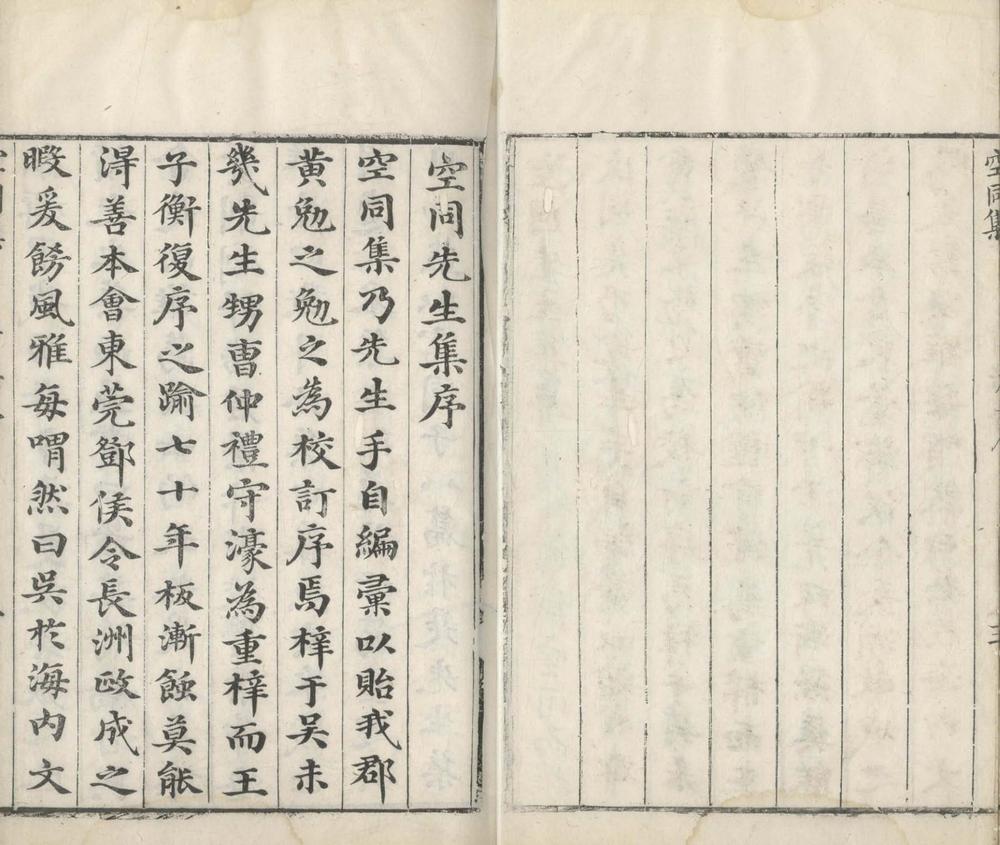 空同集
三
空同先生集序
空同集乃先生手自編彙以貽我郡
黄勉之勉之為校訂序焉梓于吴未
幾先生甥曺仲禮守濠為重梓而王
子衡復序之踰七十年板漸蝕莫能
淂善本會東莞鄧侯令長洲政成之
暇爰餝風雅每喟然曰吳於海内文